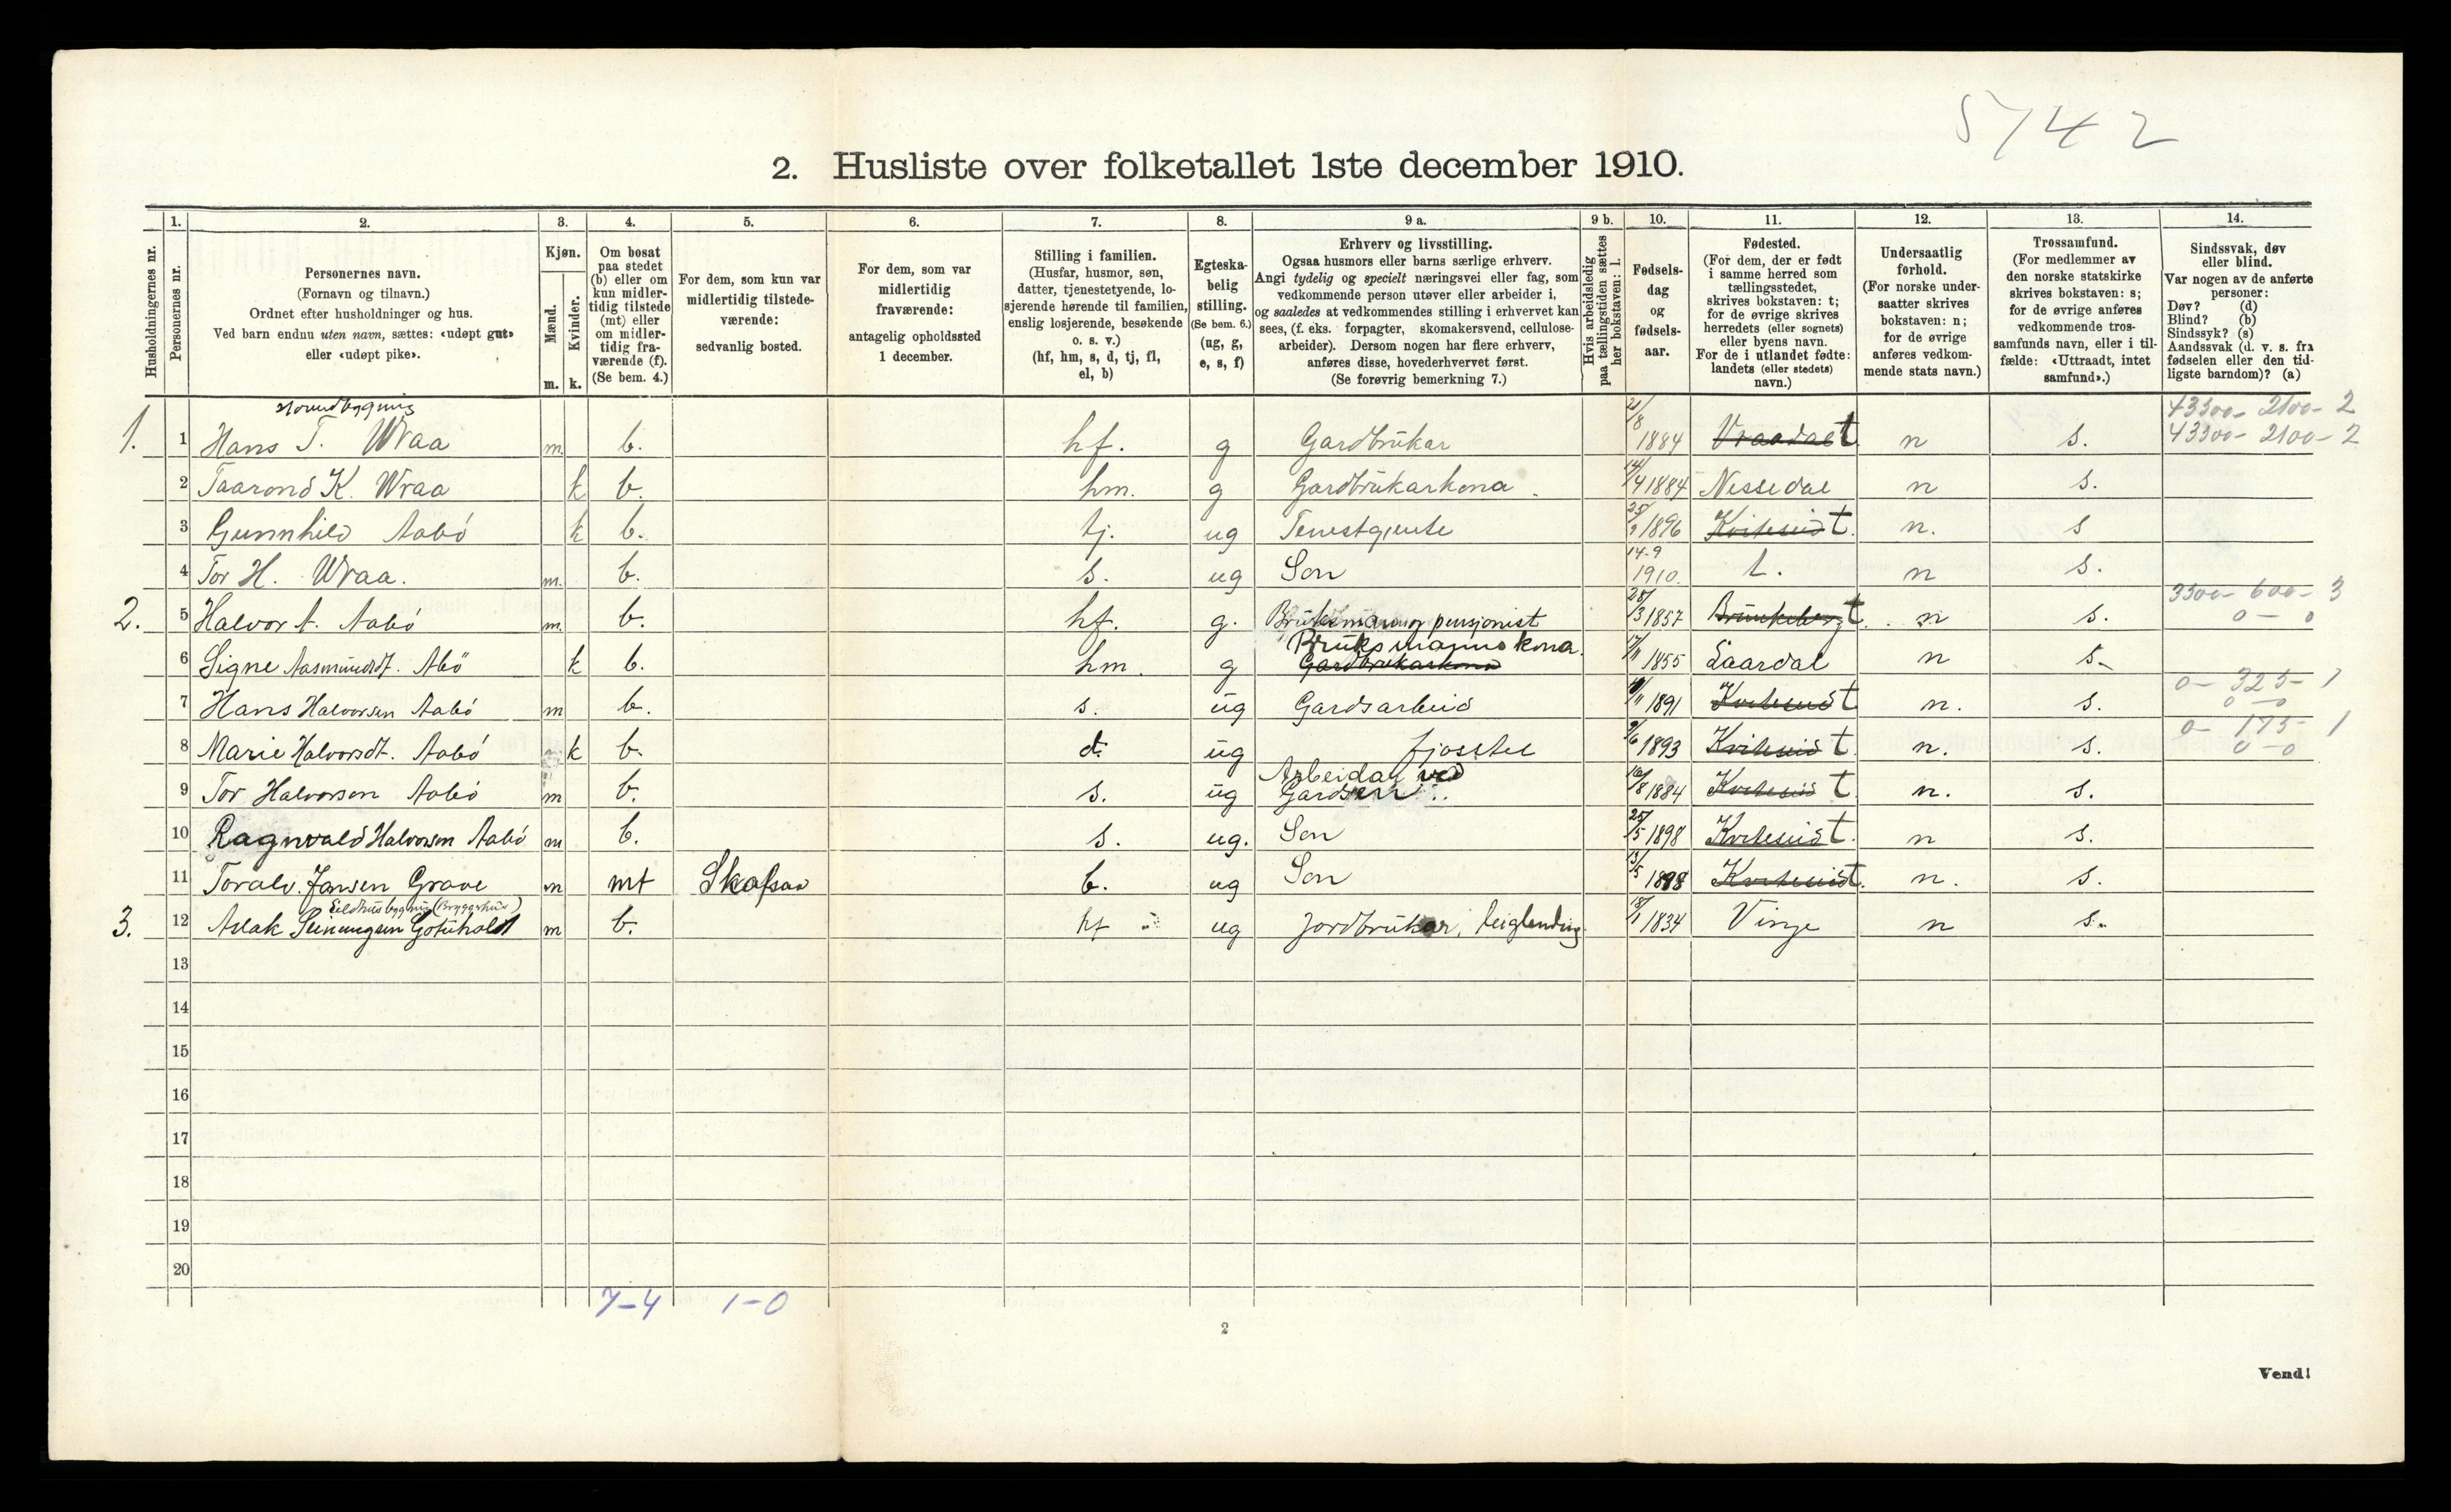 5742
2. Husliste over folketallet 1ste december 1910.
Husholdningernes nr.
1. Personernes nr.
2. Personernes navn.
(Fornavn og tilnavn.)
Ordnet efter husholdninger og hus.
Ved barn endnu uten navn, sættes: «udøpt gut»
eller «udøpt pike».
3. Kjøn.
Mænd. Kvinder.
m. k.
4. Om bosat
paa stedet
(b) eller om
kun midler-
tidig tilstede
(mt) eller
om midler-
tidig fra-
værende (f).
(Se bem. 4.)
5. For dem, som kun var
midlertidig tilstede-
værende:
sedvanlig bosted.
6. For dem, som var
midlertidig
fraværende:
antagelig opholdssted
1 december.
7. Stilling i familien.
(Husfar, husmor, søn,
datter, tjenestetyende, lo-
sjerende hørende til familien,
enslig losjerende, besøkende
o. s. v.)
(hf, hm, s, d, tj, fl,
el, b)
8. Egteska-
belig
stilling.
(Se bem. 6.)
(ug, g,
e, s, f)
9 a. Erhverv og livsstilling.
Ogsaa husmors eller barns særlige erhverv.
Angi tydelig og specielt næringsvei eller fag, som
vedkommende person utøver eller arbeider i,
og saaledes at vedkommendes stilling i erhvervet kan
sees, (f. eks. forpagter, skomakersvend, cellulose-
arbeider). Dersom nogen har flere erhverv,
anføres disse, hovederhvervet først.
(Se forøvrig bemerkning 7.)
9 b. Hvis arbeidsledig
paa tællingstiden sættes
her bokstaven: l.
10. Fødsels-
dag
og
fødsels-
aar.
11. Fødested.
(For dem, der er født
i samme herred som
tællingsstedet,
skrives bokstaven: t;
for de øvrige skrives
herredets (eller sognets)
eller byens navn.
For de i utlandet fødte:
landets (eller stedets)
navn.)
12. Undersaatlig
forhold.
(For norske under-
saatter skrives
bokstaven: n;
for de øvrige
anføres vedkom-
mende stats navn.)
13. Trossamfund.
(For medlemmer av
den norske statskirke
skrives bokstaven: s;
for de øvrige anføres
vedkommende tros-
samfunds navn, eller i til-
fælde: «Uttraadt, intet
samfund».)
14. Sindssvak, døv
eller blind.
Var nogen av de anførte
personer:
Døv? (d)
Blind? (b)
Sindssyk? (s)
Aandssvak (d. v. s. fra
fødselen eller den tid-
ligste barndom)? (a)
43300- 2100- 2
1. 1 Hans T. Wraa m. b. hf. g Gardbrukar 21/8 1884 Vraadal t n s. 43300- 2100- 2
2 Taarond K. Wraa k b. hm. g Gardbrukarkona 14/4 1884 Nissedal n s.
3 Gunnhild Aabó k b. tj. ug Tenestgjente 1896 Kviteseid t. n. s
4 Tor H. Wraa. m. b. s. ug Son 14-9 1910. t. n s.
3300- 600- 3
2. 5 Halvor A. Aabó m. b. hf. g. Bruksmann og pensjonist 1857 Brunkeberg t. n s. 0 - 0
Bruksmannskona.
6 Signe Aasmundsdt. Abö k b. hm. g Gardbrukarkona 17/11 1855 Laardal n s.
0- 325- 1
7 Hans Halvorsen Aabó m b. s. ug Gardsarbeid 1891 Kviteseid t n. s. 0 - 0
0- 175- 1
8 Marie Halvorsdt. Aabó k b. d. ug fjosstel 9/6 1893 Kviteseid t. n. s. 0-0
Arbeidar ved
9 Tor Halvorsen Aabó m b. s. ug Garden 16/8 1884 Kviteseid t n. s.
10 Ragnvald Halvorsen Aabó m b. s. ug. Son 25/5 1898 Kviteseid t. n s.
11 Toralv Jansen Grave m mt Skafsaa b. ug Son 13/5 1898 Kviteseid t. n. s.
Eeldhusbygning (Bryggerhus)
3. 12 Aslak Steinungsen Gotuholt m b. hf ug Jordbrukar, leiglending 18/1 1834 Vinje n s.
13
14
15
16
17
18
19
20
7-4 1-0
2
Vend!